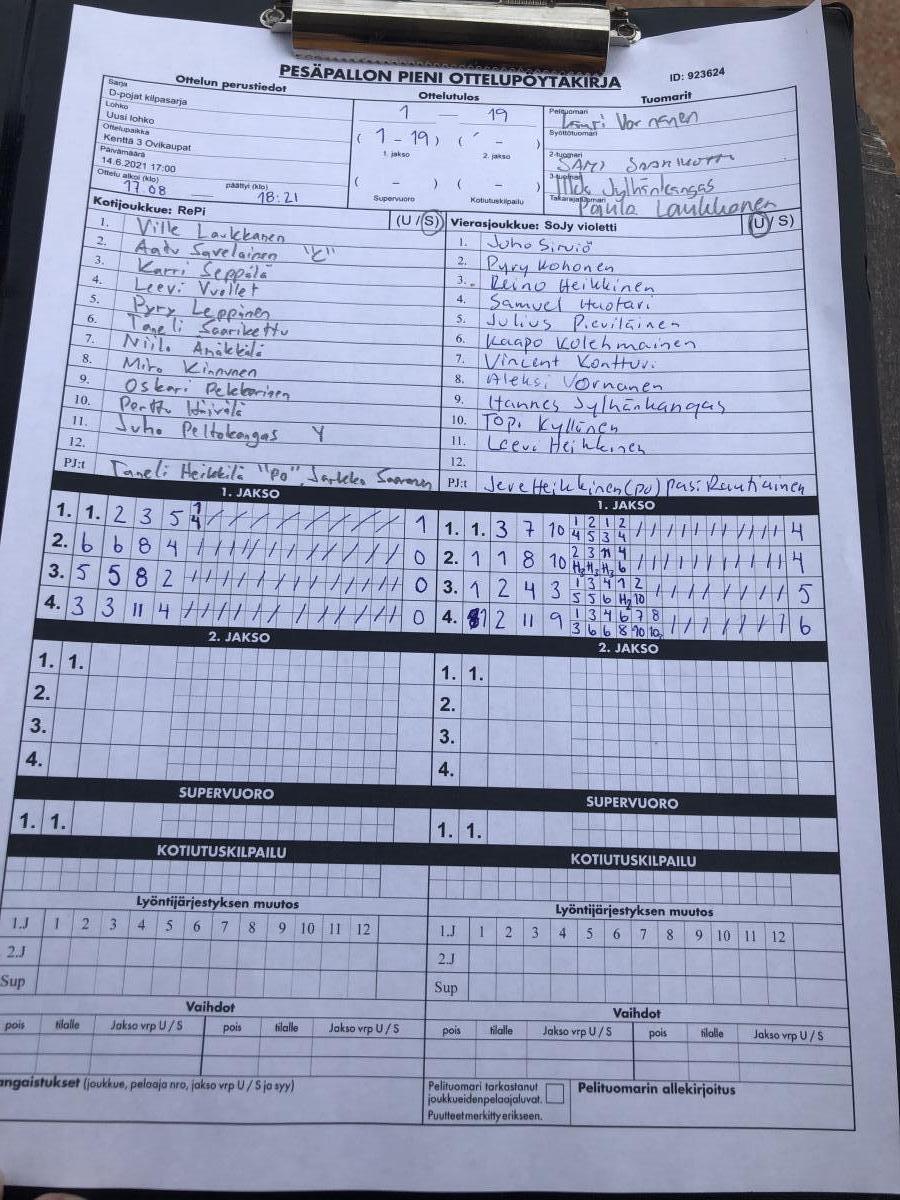 PESÄPALLON PIENI OTTELUPÖYTÄKIRJA
ID: 923624
Ottelun perustiedot
Sarja
D-pojat kilpasarja
Lohko
Uusi lohko
Ottelupaikka
Kenttä 3 Ovikaupat
Päivämäärä
14.6.2021 17:00
Ottelu alkoi (klo) päättyi (klo)
17.08 18:21
Ottelutulos
1 — 19
( 1 - 19 ) ( - )
1. jakso 2. jakso
( - ) ( - )
Supervuoro Kotiutuskilpailu
Tuomarit
Pelituomari
Lauri Vornanen
Syöttötuomari
2-tuomari
SAMI
3-tuomari
Ilkka Jylhänkangas
Takarajatuomari
Paula Laukkanen
Kotijoukkue: RePi (U / S)
1. Ville Laukkanen
2. Aatu Savelainen "C"
3. Karri Seppälä
4. Leevi Vuollet
5. Pyry Leppänen
6. Taneli Saarikettu
7. Niilo Änäkkälä
8. Miro Kinnunen
9. Oskari Pekkarinen
10. Penttu
11. Juho Peltokangas Y
12.
PJ:t Taneli Heikkilä "PO", Jarkko
Vierasjoukkue: SoJy violetti (U / S)
1. Juho Sirviö
2. Pyry Kohonen
3. Reino Heikkinen
4. Samuel Huotari
5. Julius Pieviläinen
6. Kaapo Kolehmainen
7. Vincent Kontturi
8. Aleksi Vornanen
9. Hannes Jylhänkangas
10. Topi Kyllönen
11. Leevi Heikkinen
12.
PJ:t Jere Heikkinen (po) Pasi Rautiainen
1. JAKSO
1. 1. 2 3 5 1 1
4
2. 6 6 8 4 0
3. 5 5 8 2 0
4. 3 3 11 4 0
1. JAKSO
1. 1. 3 7 10 1 2 1 2 4
4 5 3 4
2. 1 1 8 10 2 3 11 4 4
H2 H3 H3 6
3. 1 2 4 3 1 3 4 1 2 5
5 5 6 H2 10
4. 12 11 9 1 3 4 6 7 8 6
3 6 6 8 10 10
2. JAKSO
1. 1.
2.
3.
4.
2. JAKSO
1. 1.
2.
3.
4.
SUPERVUORO
1. 1.
SUPERVUORO
1. 1.
KOTIUTUSKILPAILU
KOTIUTUSKILPAILU
Lyöntijärjestyksen muutos
1.J 1 2 3 4 5 6 7 8 9 10 11 12
2.J
Sup
Lyöntijärjestyksen muutos
1.J 1 2 3 4 5 6 7 8 9 10 11 12
2.J
Sup
Vaihdot
pois tilalle Jakso vrp U / S pois tilalle Jakso vrp U / S
Vaihdot
pois tilalle Jakso vrp U / S pois tilalle Jakso vrp U / S
angaistukset (joukkue, pelaaja nro, jakso vrp U / S ja syy)
Pelituomari tarkastanut
joukkueidenpelaajaluvat.
Puutteet merkitty erikseen.
Pelituomarin allekirjoitus